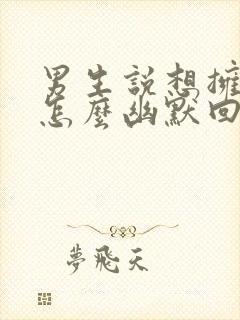 男生說想擁
怎麼幽默回
夢飛天